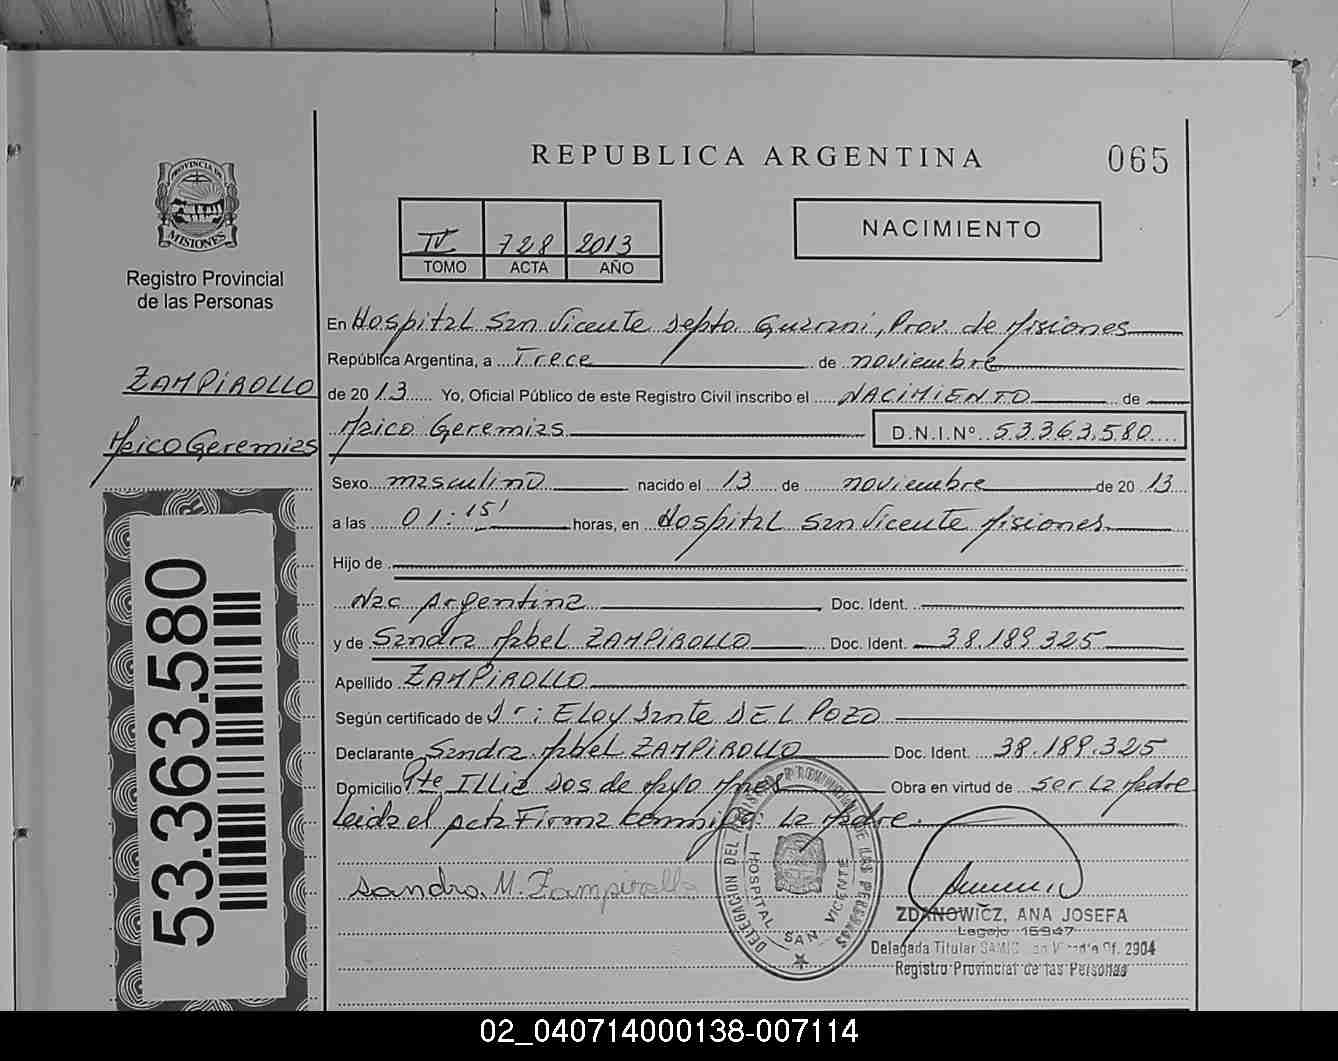 REPUBLICA ARGENTINA
065
PROVINCIA DE
MISIONES
Registro Provincial
de las Personas
IV 728 2013
TOMO ACTA AÑO
NACIMIENTO
En Hospital San Vicente Depto. Guarani, Prov. de Misiones
República Argentina, a Trece de noviembre
de 2013 Yo, Oficial Público de este Registro Civil inscribo el NACIMIENTO de
Maico Geremias D.N.I.Nº 53.363.580
ZAMPIROLLO
Maico Geremias
Sexo masculino nacido el 13 de noviembre de 2013
a las 01:15' horas, en Hospital San Vicente Misiones
Hijo de
Nac Argentina Doc. Ident.
y de Sandra Mabel ZAMPIROLLO Doc. Ident. 38.189.325
Apellido ZAMPIROLLO
Según certificado de Dr: Eloy Dante DEL POZO
Declarante Sandra Mabel ZAMPIROLLO Doc. Ident. 38.189.325
Domicilio Pte ILLia Dos de Mayo Mnes Obra en virtud de ser La Madre
Leida el acta Firma conmigo: La Madre.
Sandra M. Zampirollo
53.363.580
DELEGACION DEL REGISTRO PROVINCIAL DE LAS PERSONAS
HOSPITAL SAN VICENTE
ZDANOWICZ, ANA JOSEFA
Legajo 16947
Delegada Titular Of. 2904
Registro Provincial de las Personas
02_040714000138-007114